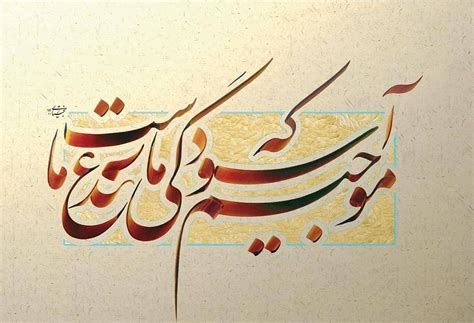 موجیم که آسودگی ما عدم ماست